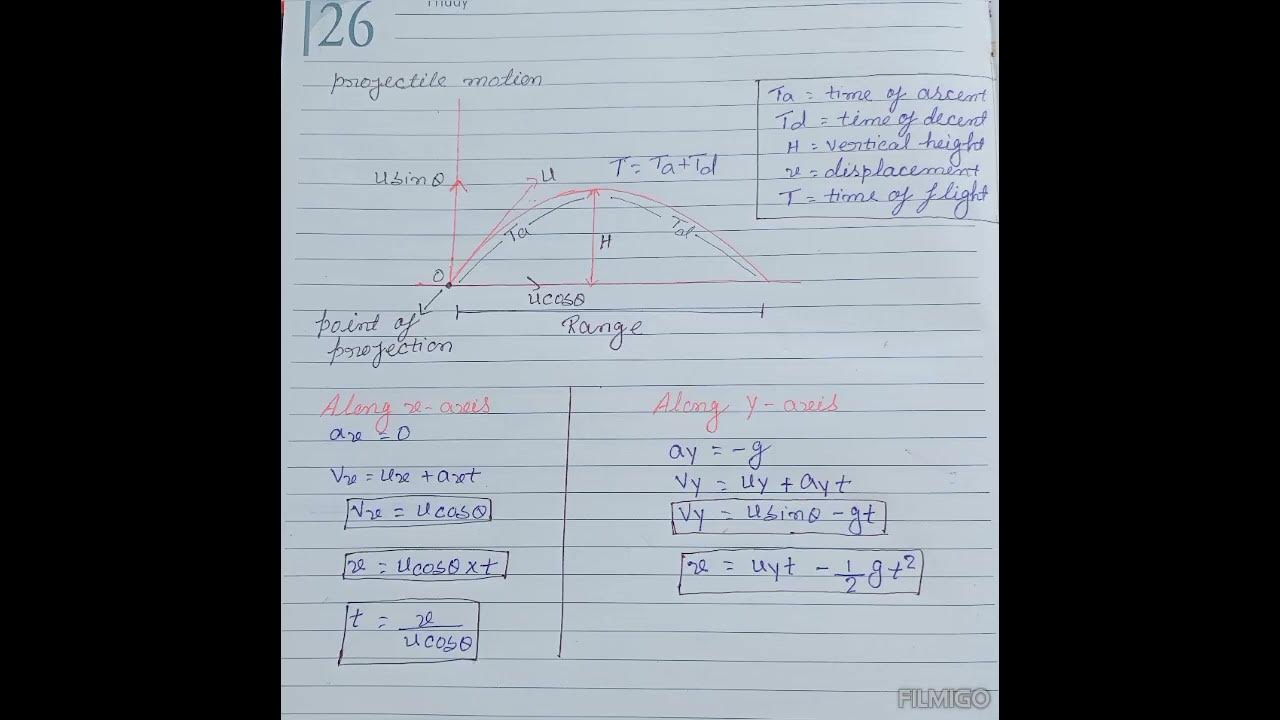 26
projectile motion
Ta = time of ascent
Td = time of decent
H = vertical height
x = displacement
T = time of flight
T = Ta + Td
usinθ
u
Ta
Td
H
O
ucosθ
Range
point of
projection
Along x-axis
ax = 0
Vx = ux + axt
Vx = ucosθ
x = ucosθ x t
t = x / ucosθ
Along y-axis
ay = -g
Vy = uy + ayt
Vy = usinθ - gt
x = uyt - 1/2 gt²
FILMIGO